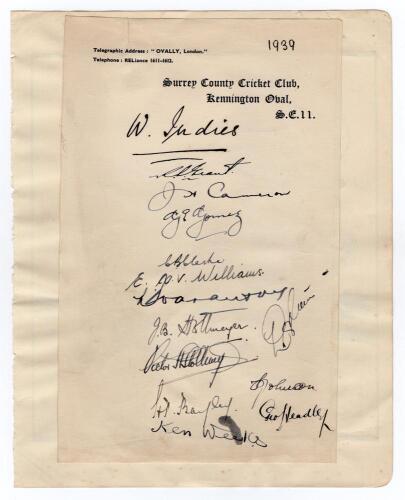 Telegraphic Address : "OVALLY, London."
Telephone : RELiance 1611-1612.
1939
Surrey County Cricket Club,
Kennington Oval,
S.E.11.
W. Indies
J H Cameron
G E Gomez
C B Clarke
E. A. V. Williams
J. B. Stollmeyer
Victor H Stollmeyer
T Johnson
Geo Headley
Ken Weekes